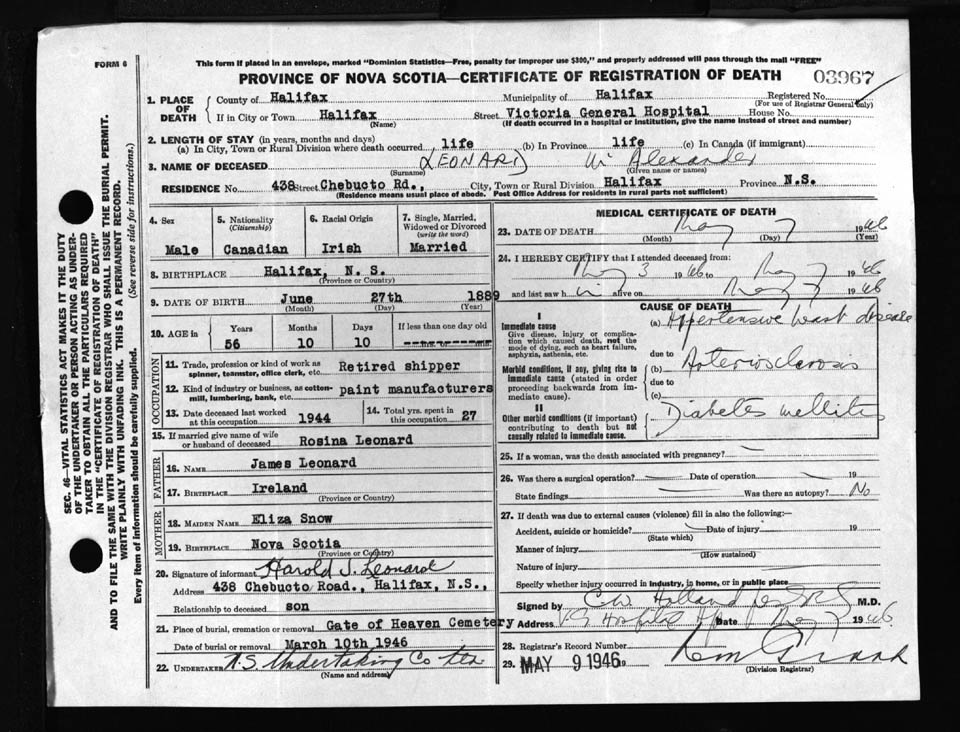 FORM 6
This form if placed in an envelope, marked "Dominion Statistics—Free, penalty for improper use $300," and properly addressed will pass through the mail "FREE"
PROVINCE OF NOVA SCOTIA—CERTIFICATE OF REGISTRATION OF DEATH 03967
1. PLACE OF DEATH County of Halifax Municipality of Halifax Registered No.
(For use of Registrar General only)
If in City or Town Halifax Street Victoria General Hospital House No.
(Name) (If death occurred in a hospital or institution, give the name instead of street and number)
2. LENGTH OF STAY (in years, months and days)
(a) In City, Town or Rural Division where death occurred life (b) In Province life (c) In Canada (if immigrant)
3. NAME OF DECEASED LEONARD Wm Alexander
(Surname) (Given name or names)
RESIDENCE No. 438 Street Chebucto Rd., City, Town or Rural Division Halifax Province N.S.
(Residence means usual place of abode. Post Office Address for residents in rural parts not sufficient)
4. Sex Male
5. Nationality (Citizenship) Canadian
6. Racial Origin Irish
7. Single, Married, Widowed or Divorced (write the word) Married
8. BIRTHPLACE Halifax, N. S.
(Province or Country)
9. DATE OF BIRTH June 27th 1889
(Month) (Day) (Year)
10. AGE in Years Months Days If less than one day old
56 10 10
OCCUPATION
11. Trade, profession or kind of work as spinner, teamster, office clerk, etc. Retired shipper
12. Kind of industry or business, as cotton-mill, lumbering, bank, etc. paint manufacturers
13. Date deceased last worked at this occupation 1944
14. Total yrs. spent in this occupation 27
15. If married give name of wife or husband of deceased Rosina Leonard
FATHER
16. NAME James Leonard
17. BIRTHPLACE Ireland
(Province or Country)
MOTHER
18. MAIDEN NAME Eliza Snow
19. BIRTHPLACE Nova Scotia
(Province or Country)
20. Signature of informant Harold J. Leonard
Address 438 Chebucto Road., Halifax, N.S.,
Relationship to deceased son
21. Place of burial, cremation or removal Gate of Heaven Cemetery
Date of burial or removal March 10th 1946
22. UNDERTAKER N.S. Undertaking Co Ltd
(Name and address)
MEDICAL CERTIFICATE OF DEATH
23. DATE OF DEATH May 7 1946
(Month) (Day) (Year)
24. I HEREBY CERTIFY that I attended deceased from:
May 3 1946 to May 7 1946
and last saw h im alive on May 7 1946
CAUSE OF DEATH
I
Immediate cause
Give disease, injury or complication which caused death, not the mode of dying, such as heart failure, asphyxia, asthenia, etc.
(a) Hypertensive heart disease
due to
Morbid conditions, if any, giving rise to immediate cause (stated in order proceeding backwards from immediate cause).
(b) Arteriosclerosis
due to
(c)
II
Other morbid conditions (if important) contributing to death but not causally related to immediate cause.
Diabetes mellitus
25. If a woman, was the death associated with pregnancy?
26. Was there a surgical operation? Date of operation 19
State findings Was there an autopsy? No
27. If death was due to external causes (violence) fill in also the following:—
Accident, suicide or homicide? Date of injury 19
(State which)
Manner of injury
(How sustained)
Nature of injury
Specify whether injury occurred in industry, in home, or in public place
Signed by C W Holland M.D.
Address V G Hospital Date May 7 1946
28. Registrar's Record Number
29. MAY 9 1946 19
(Division Registrar)
SEC. 46—VITAL STATISTICS ACT MAKES IT THE DUTY
OF THE UNDERTAKER OR PERSON ACTING AS UNDER-
TAKER TO OBTAIN ALL THE PARTICULARS REQUIRED
IN THE "CERTIFICATE OF REGISTRATION OF DEATH"
AND TO FILE THE SAME WITH THE DIVISION REGISTRAR WHO SHALL ISSUE THE BURIAL PERMIT.
WRITE PLAINLY WITH UNFADING INK. THIS IS A PERMANENT RECORD.
Every item of information should be carefully supplied. (See reverse side for instructions.)